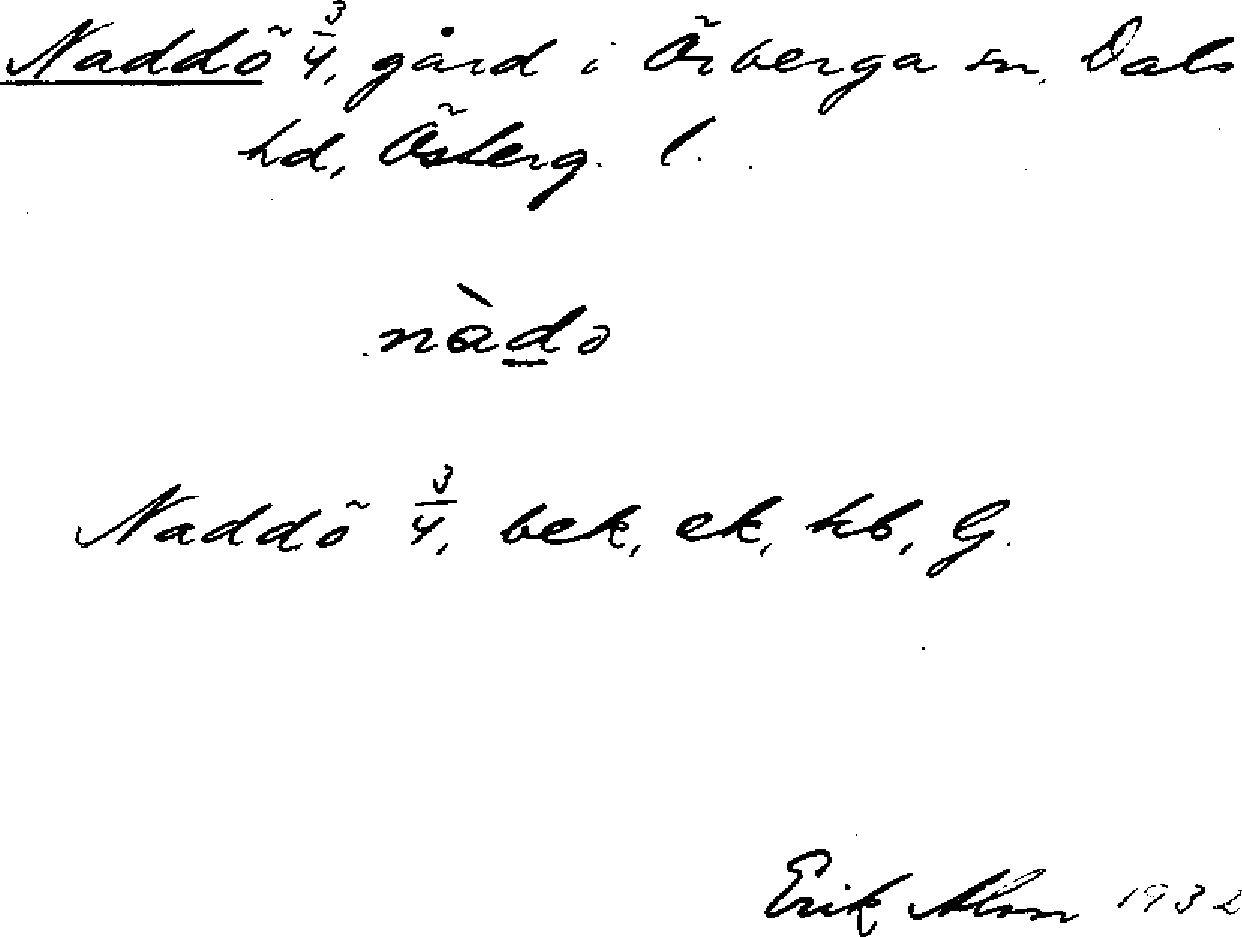 Naddö 3/4, gård i Örberga sn, Dals
hd, Österg. l.
nàdə
Naddö 3/4, bek, ek, hb, G.
Erik Abon 1932